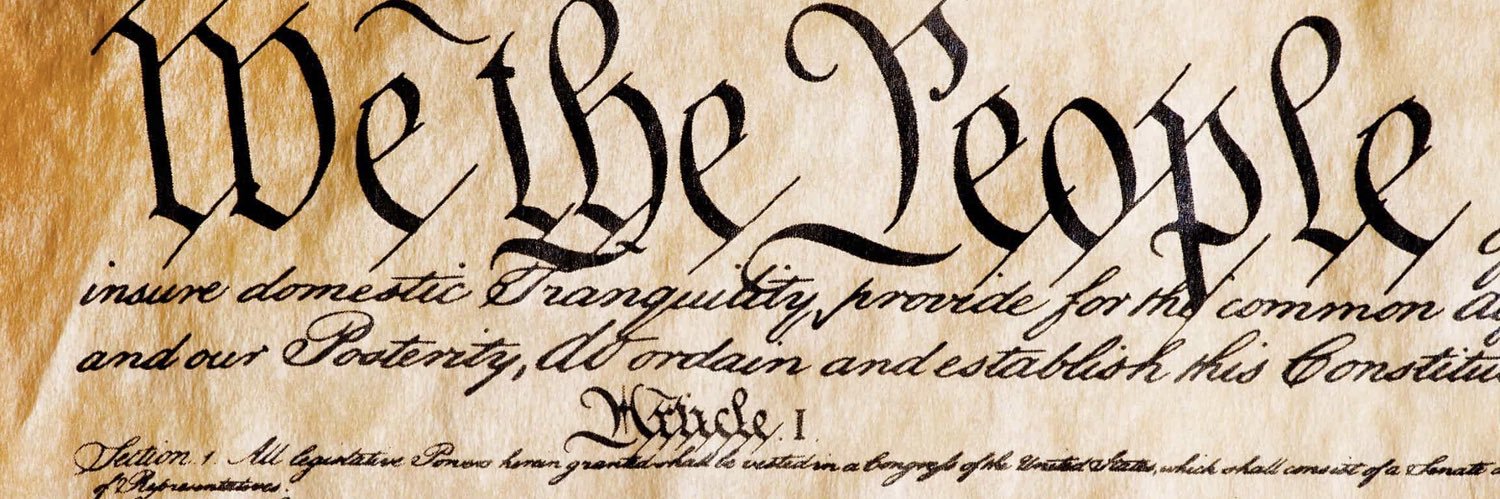 We the People
insure domestic Tranquility, provide for the common
and our Posterity, do ordain and establish this Constitu
Article. I.
Section. 1. All legislative Powers herein granted shall be vested in a Congress of the United States, which shall consist of a Senate
of Representatives.